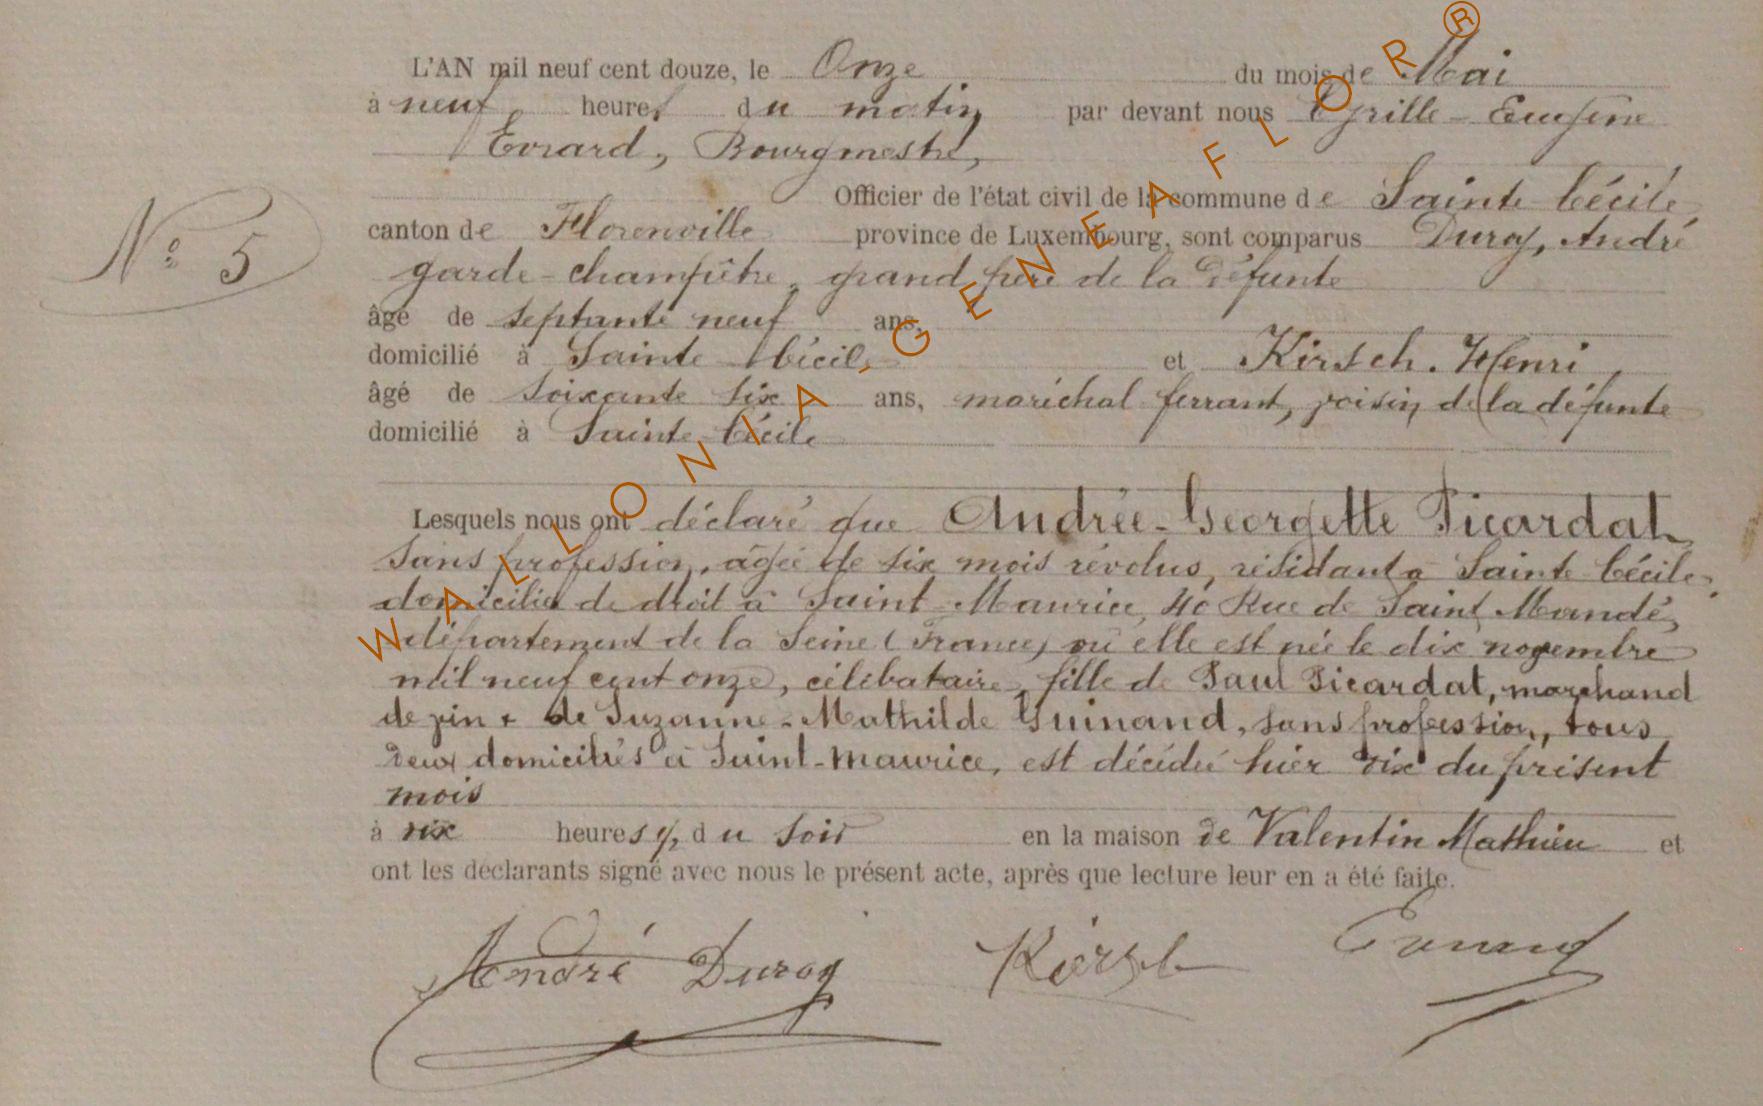 L'AN mil neuf cent douze, le Onze du mois de Mai
à neuf heures du matin par devant nous Cyrille-Eugène
Evrard, Bourgmestre,
Officier de l'état civil de la commune de Sainte-Cécile,
N° 5
canton de Florenville province de Luxembourg, sont comparus Duroy, André
garde-champêtre, grand père de la défunte
âgé de septante neuf ans,
domicilié à Sainte Cécile et Kirsch. Henri,
âgé de soixante six ans, maréchal ferrant, voisin de la défunte
domicilié à Sainte-Cécile
Lesquels nous ont déclaré que Andrée-Georgette Picardat
sans profession, âgée de six mois révolus, résidant à Sainte Cécile,
domiciliée de droit à Saint-Maurice, 40 Rue de Saint Mandé,
département de la Seine (France) où elle est née le dix novembre
mil neuf cent onze, célibataire, fille de Paul Picardat, marchand
de vin & de Suzanne-Mathilde Guinand, sans profession, tous
deux domiciliés à Saint-Maurice, est décédée hier dix du présent
mois
à six heures ½ du soir en la maison de Valentin Mathieu et
ont les declarants signé avec nous le présent acte, après que lecture leur en a été faite.
André Duroy Kirsch Evrard
WALLONIA-GENEAFLOR®